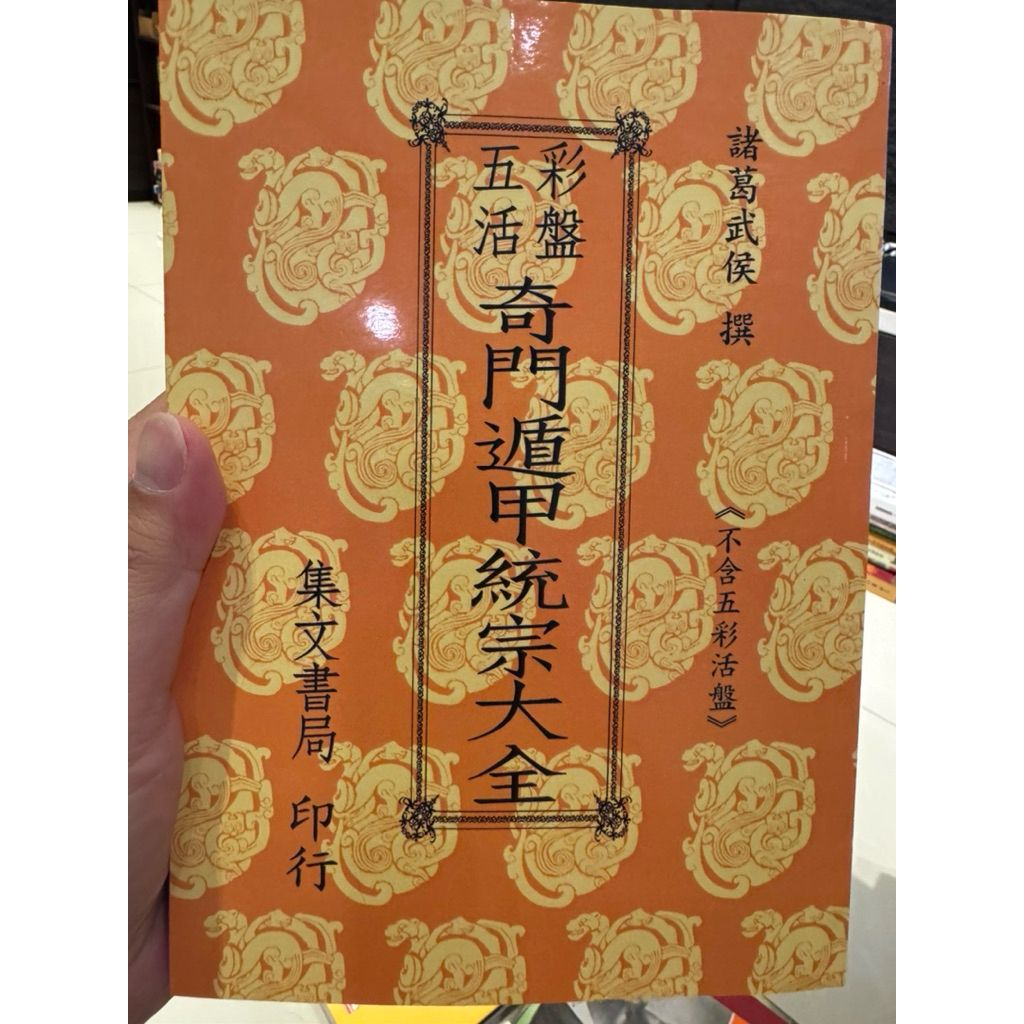 諸葛武侯 撰
《不含五彩活盤》
五彩
活盤
奇門遁甲統宗大全
集文書局 印行